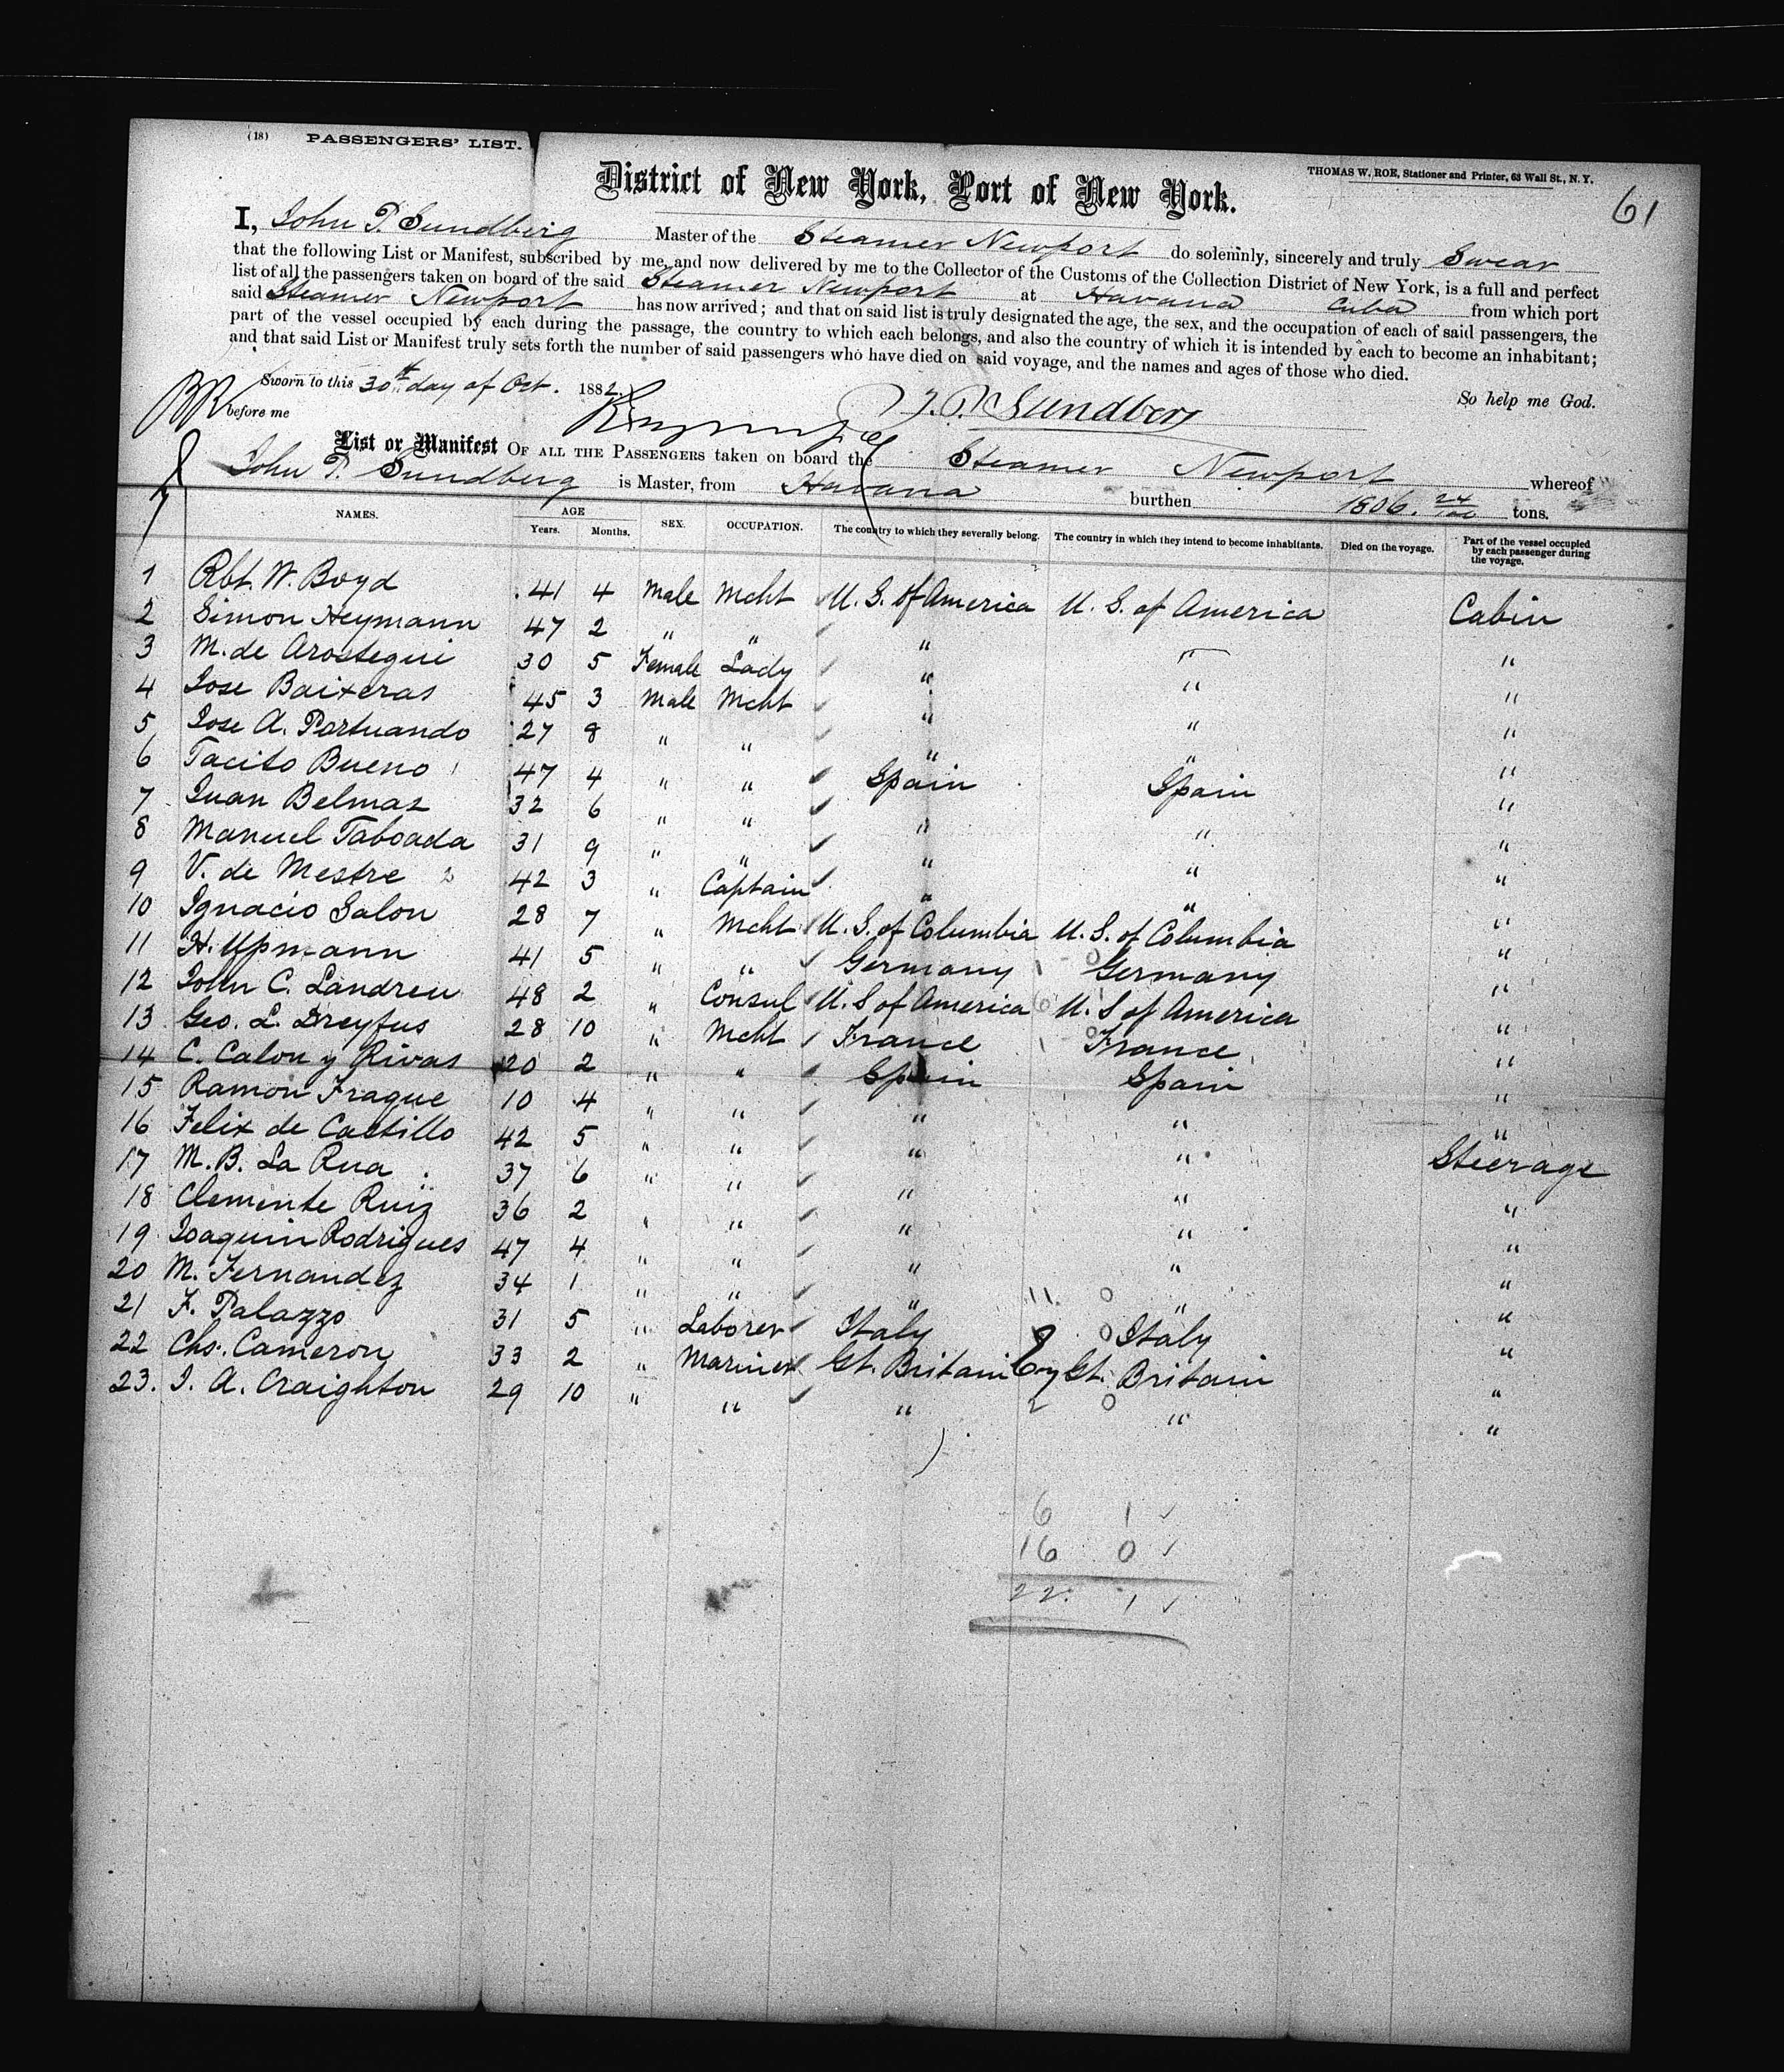 (18) PASSENGERS' LIST.
THOMAS W. ROE, Stationer and Printer, 63 Wall St., N.Y.
61
District of New York, Port of New York.
I, John P. Sundberg Master of the Steamer Newport do solemnly, sincerely and truly Swear
that the following List or Manifest, subscribed by me, and now delivered by me to the Collector of the Customs of the Collection District of New York, is a full and perfect
list of all the passengers taken on board of the said Steamer Newport at Havana Cuba from which port
said Steamer Newport has now arrived; and that on said list is truly designated the age, the sex, and the occupation of each of said passengers, the
part of the vessel occupied by each during the passage, the country to which each belongs, and also the country of which it is intended by each to become an inhabitant;
and that said List or Manifest truly sets forth the number of said passengers who have died on said voyage, and the names and ages of those who died.
Sworn to this 30th day of Oct. 1882. So help me God.
before me J. P. Sundberg
List or Manifest OF ALL THE PASSENGERS taken on board the Steamer Newport whereof
John P. Sundberg is Master, from Havana burthen 1806. 24/100 tons.
NAMES. AGE Years. Months. SEX. OCCUPATION. The country to which they severally belong. The country in which they intend to become inhabitants. Died on the voyage. Part of the vessel occupied by each passenger during the voyage.
1 Rbt. W. Boyd 41 4 Male Mcht U. S. of America U. S. of America Cabin
2 Simon Heymann 47 2 " " " " "
3 M. de Arostegui 30 5 Female Lady " " "
4 Jose Baixeras 45 3 Male Mcht " " "
5 Jose A. Portuando 27 8 " " " " "
6 Tacito Bueno 47 4 " " Spain Spain "
7 Juan Belmas 32 6 " " " " "
8 Manuel Taboada 31 9 " " " " "
9 V. de Mestre 42 3 " Captain " " "
10 Ignacio Salon 28 7 " Mcht U. S. of Columbia U. S. of Columbia "
11 H. Upmann 41 5 " " Germany Germany "
12 John C. Landreu 48 2 " Consul U. S of America U. S of America "
13 Geo. L. Dreyfus 28 10 " Mcht France France "
14 C. Calon y Rivas 20 2 " " Spain Spain "
15 Ramon Fraque 10 4 " " " " "
16 Felix de Castillo 42 5 " " " " "
17 M. B. La Rua 37 6 " " " " Steerage
18 Clemente Ruiz 36 2 " " " " "
19 Joaquin Rodrigues 47 4 " " " " "
20 M. Fernandez 34 1 " " " " "
21 F. Palazzo 31 5 " Laborer Italy Italy "
22 Chs. Cameron 33 2 " Mariner Gt. Britain Gt. Britain "
23. J. A. Craighton 29 10 " " " " "
6 1
16 0
22. 1